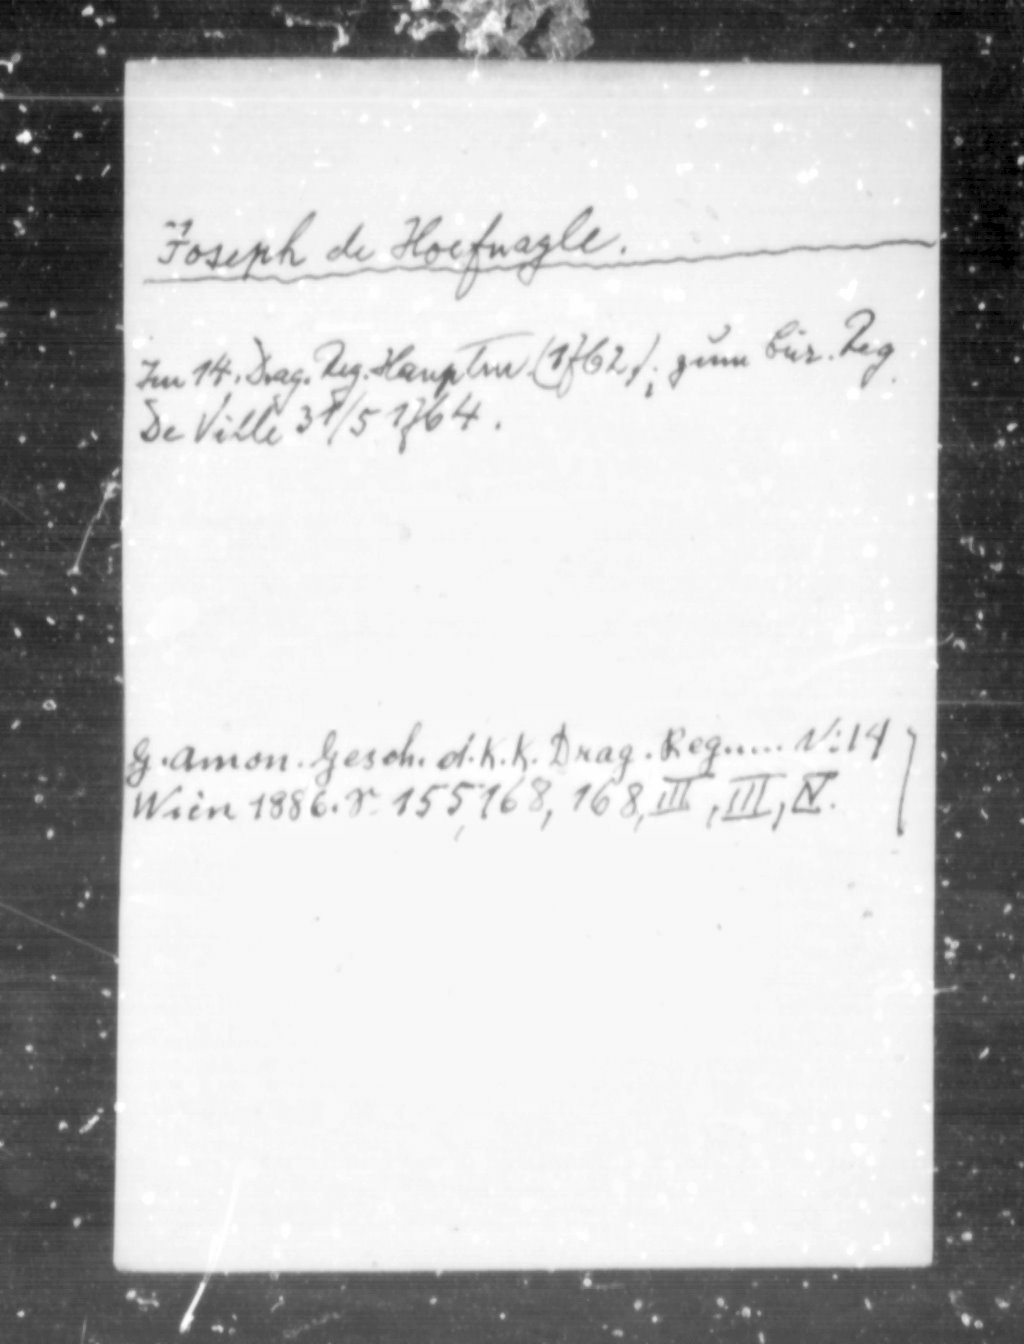 Joseph de Hoefnagle.
Im 14. Drag. Reg. Hauptm (1762); zum Cür. Reg.
De Ville 31/5 1764.
G. Amon. Gesch. d. K. K. Drag. Reg..... N: 14
Wien 1886. S. 155, 168, 168, III, III, IV.